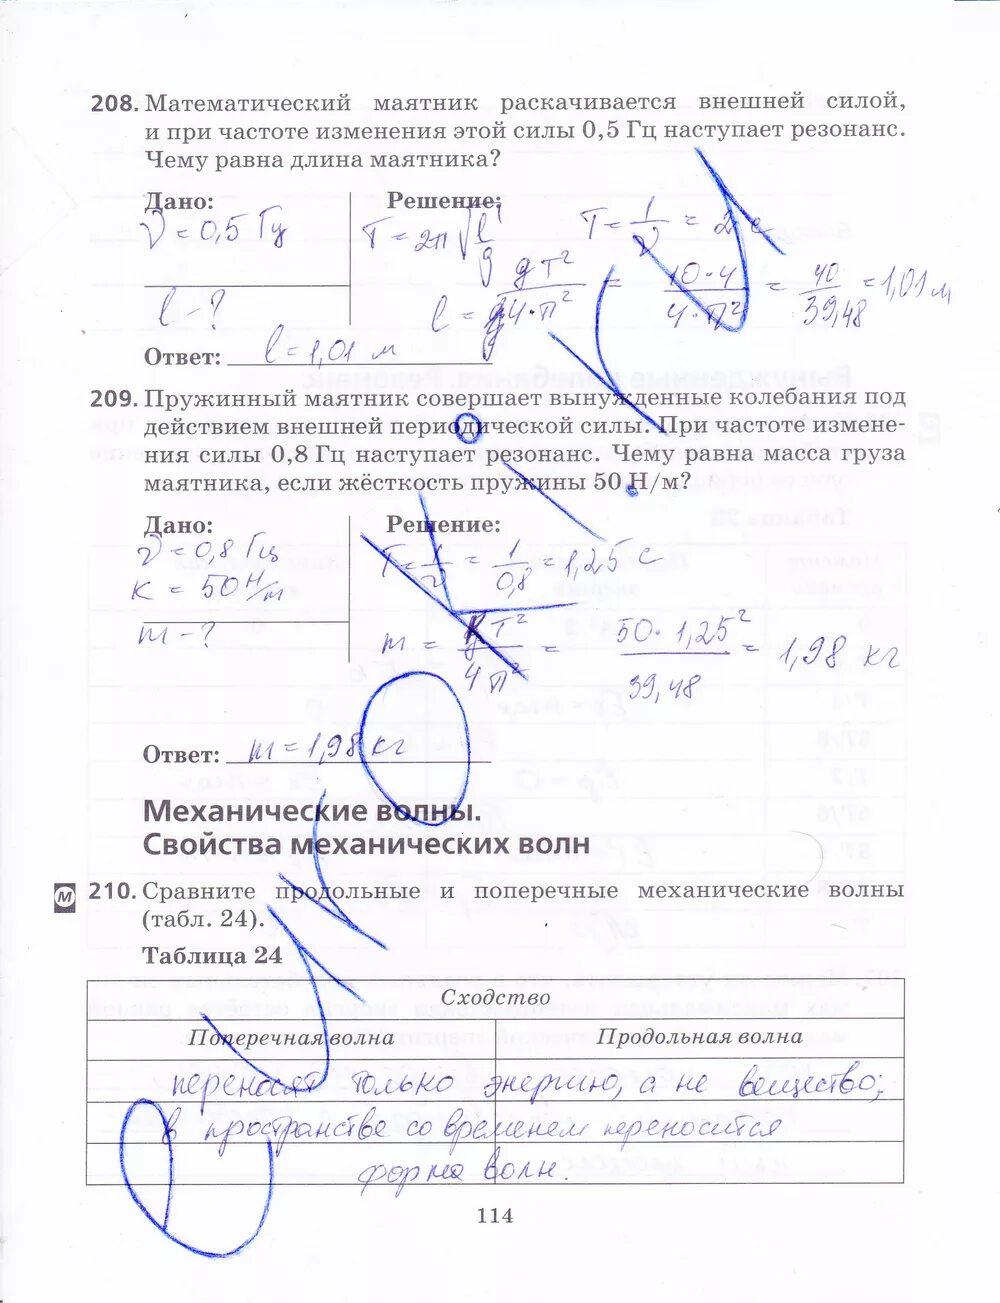 208. Математический маятник раскачивается внешней силой,
и при частоте изменения этой силы 0,5 Гц наступает резонанс.
Чему равна длина маятника?
Дано: Решение:
ν = 0,5 Гц T = 2π√l/g T = 1/ν = 2 с
l - ? l = gT²/4·π² = 10·4/4·π² = 40/39,48 = 1,01 м
Ответ: l = 1,01 м
209. Пружинный маятник совершает вынужденные колебания под
действием внешней периодической силы. При частоте измене-
ния силы 0,8 Гц наступает резонанс. Чему равна масса груза
маятника, если жёсткость пружины 50 Н/м?
Дано: Решение:
ν = 0,8 Гц T = 1/ν = 1/0,8 = 1,25 с
k = 50 Н/м
m - ? m = kT²/4π² = 50·1,25²/39,48 = 1,98 кг
Ответ: m = 1,98 кг
Механические волны.
Свойства механических волн
М 210. Сравните продольные и поперечные механические волны
(табл. 24).
Таблица 24
Сходство
Поперечная волна Продольная волна
переносят только энергию, а не вещество;
в пространстве со временем переносится
форма волн.
114